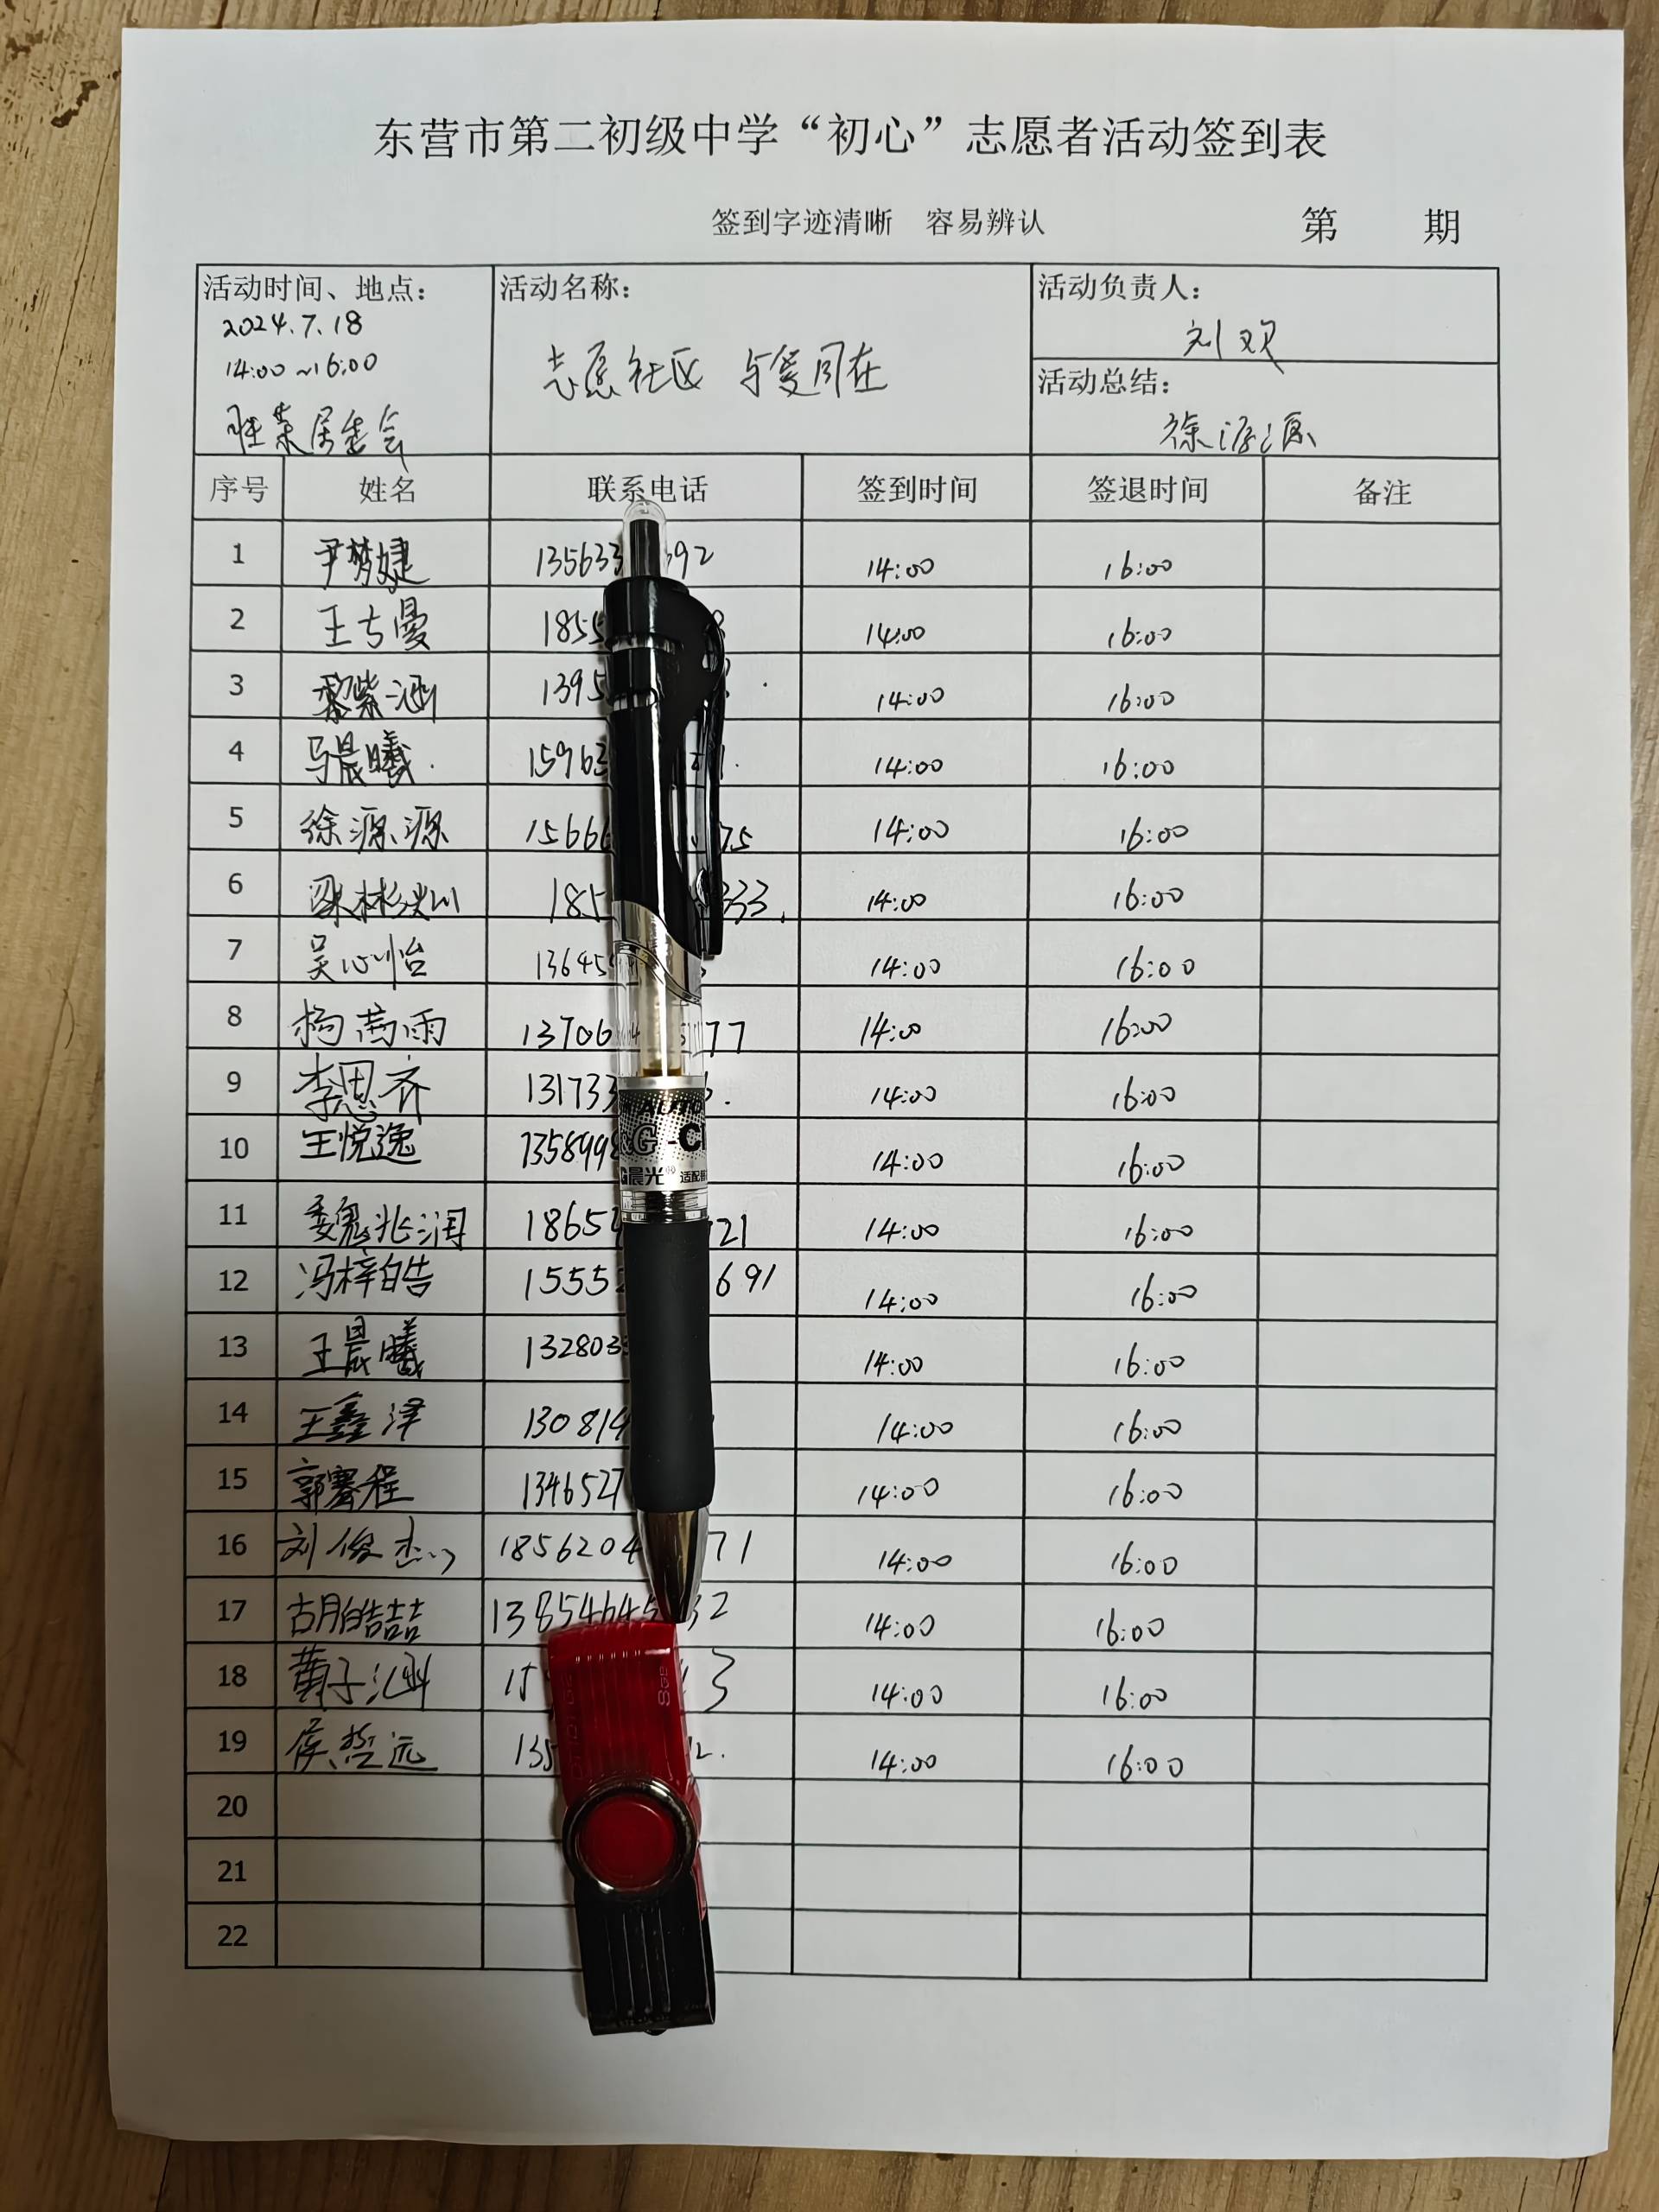 东营市第二初级中学“初心”志愿者活动签到表
签到字迹清晰 容易辨认 第 期
活动时间、地点：
2024.7.18
14:00~16:00
胜莱居委会
活动名称：
志愿社区 与爱同在
活动负责人：
刘双
活动总结：
徐源源
序号 姓名 联系电话 签到时间 签退时间 备注
1 尹梦婕 135633 92 14:00 16:00
2 王 曼 185 14:00 16:00
3 黎紫涵 1395 14:00 16:00
4 马晨曦 15963 14:00 16:00
5 徐源源 1566 75 14:00 16:00
6 梁 185 333 14:00 16:00
7 吴心怡 13645 14:00 16:00
8 杨 雨 13706 77 14:00 16:00
9 李思齐 131733 14:00 16:00
10 王悦逸 135899 14:00 16:00
11 魏兆润 1865 21 14:00 16:00
12 冯梓皓 1555 691 14:00 16:00
13 王晨曦 132803 14:00 16:00
14 王鑫泽 130814 14:00 16:00
15 郭骞程 1346527 14:00 16:00
16 刘俊杰 1856204 71 14:00 16:00
17 胡皓喆 13854645 32 14:00 16:00
18 黄子涵 15 3 14:00 16:00
19 侯哲远 135 2. 14:00 16:00
20
21
22
AUTO
&G -C
G晨光® 适配
8GB